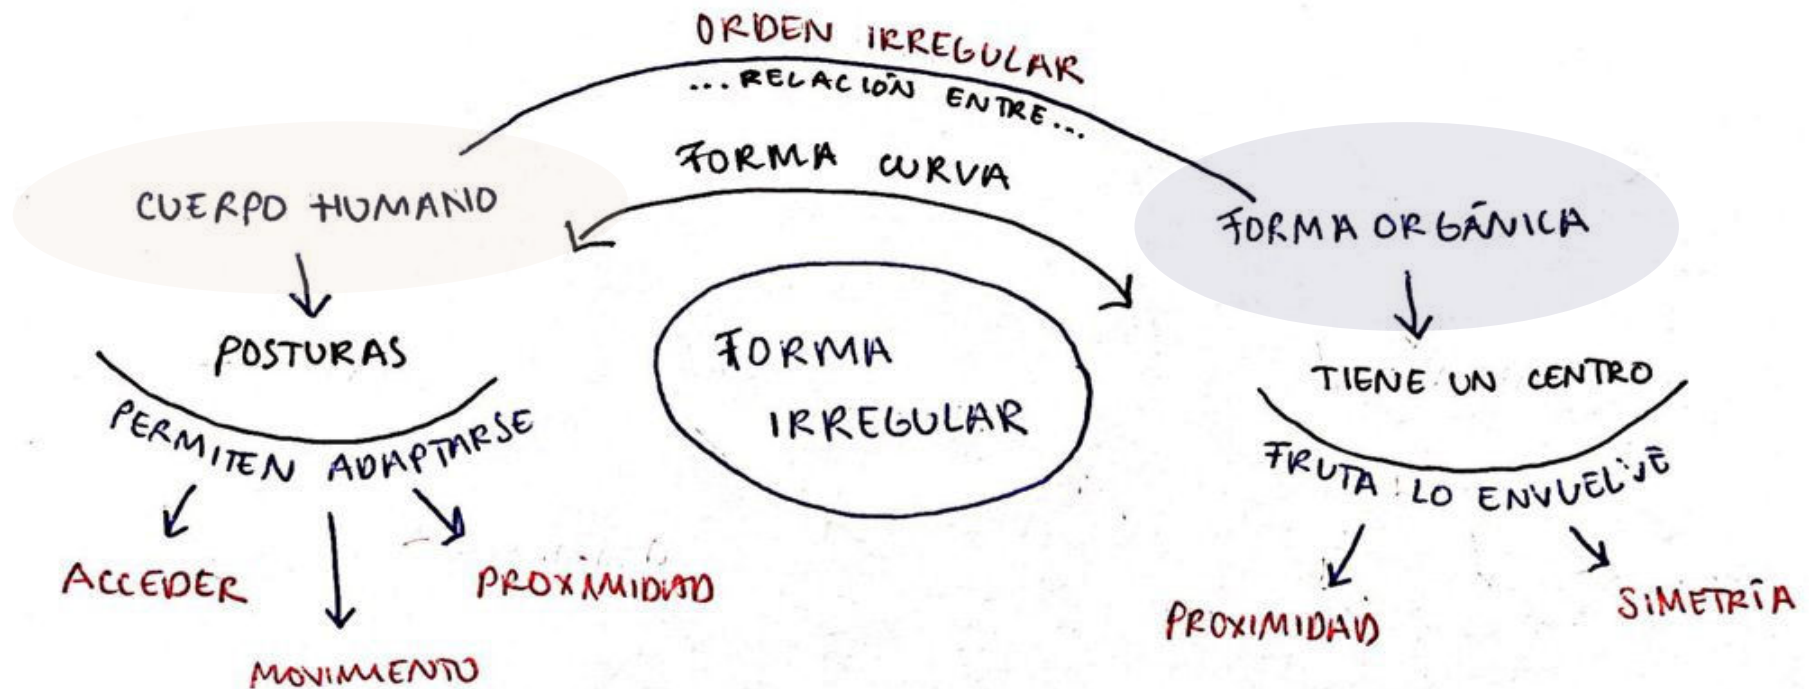 ORDEN IRREGULAR
...RELACIÓN ENTRE...
FORMA CURVA
CUERPO HUMANO
FORMA ORGÁNICA
POSTURAS
PERMITEN ADAPTARSE
ACCEDER
MOVIMIENTO
PROXIMIDAD
FORMA
IRREGULAR
TIENE UN CENTRO
FRUTA LO ENVUELVE
PROXIMIDAD
SIMETRÍA